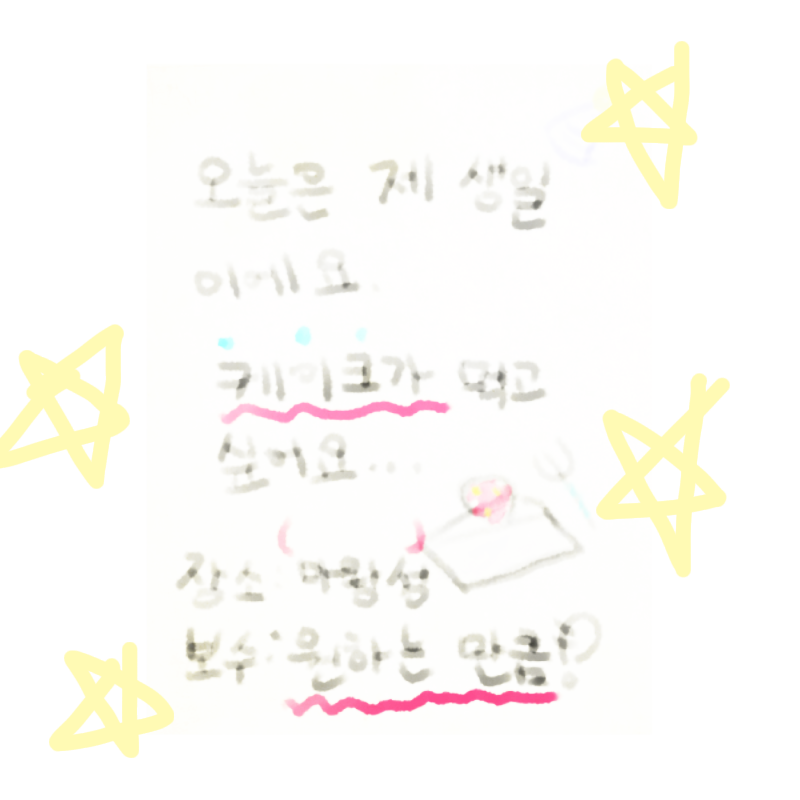 오늘은 제 생일
이에요.
케이크가 먹고
싶어요...
장소: 바람성
보수: 원하는 만큼!